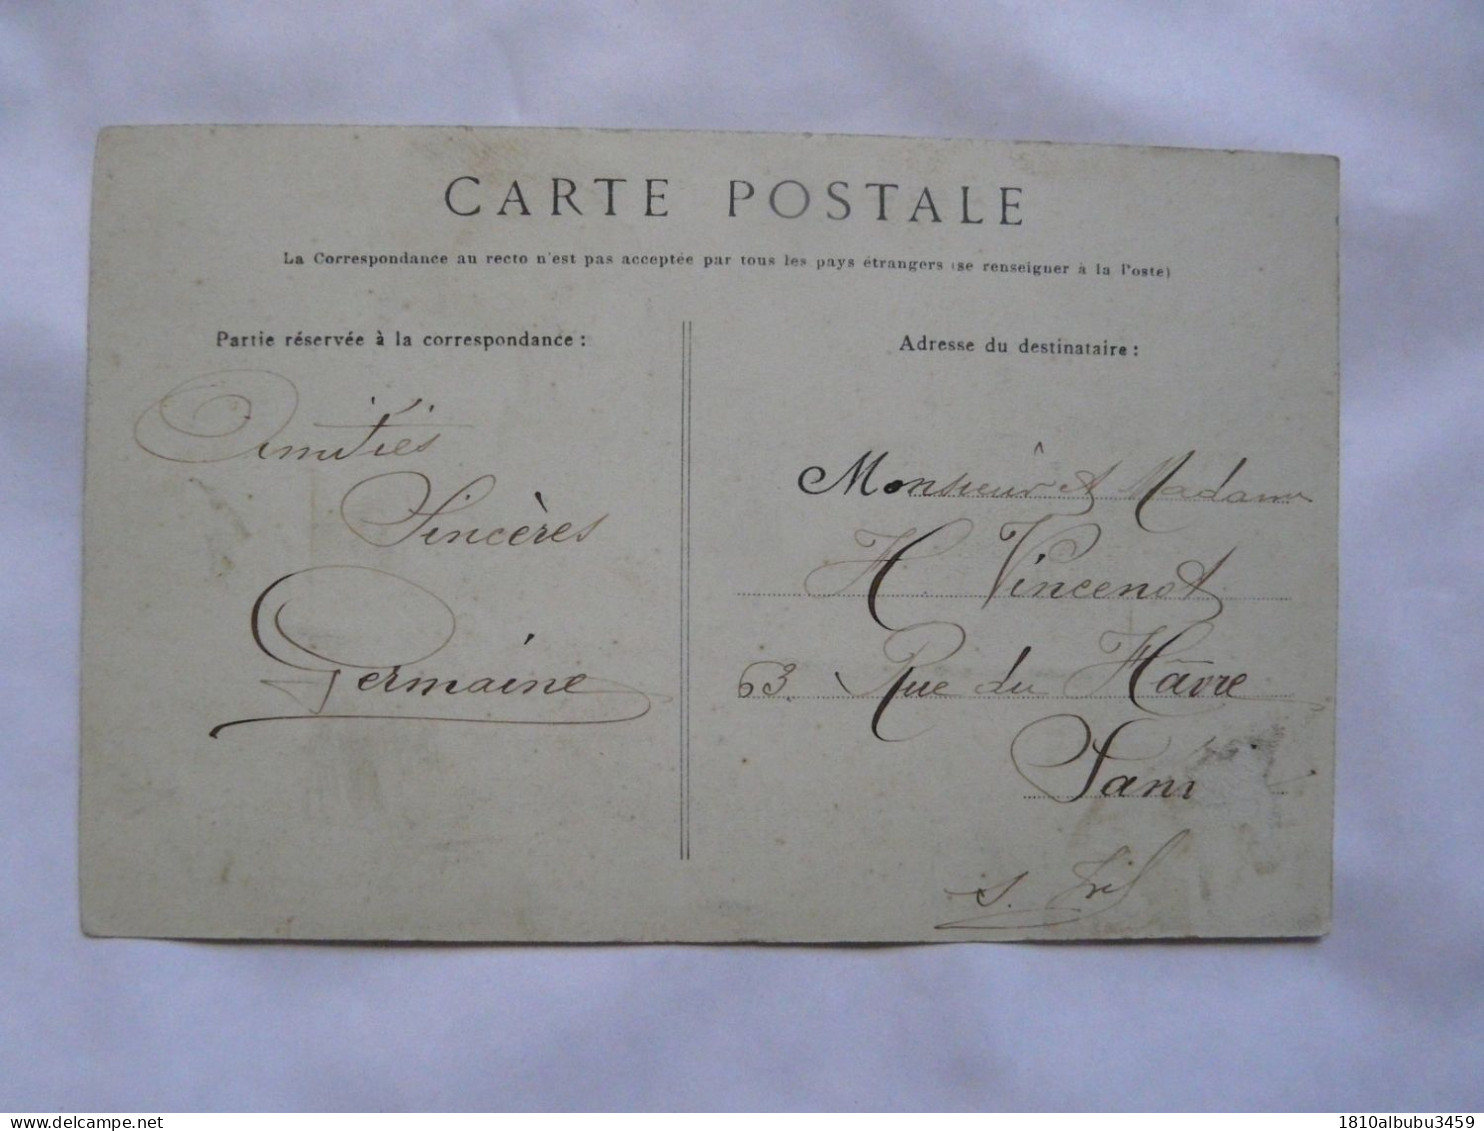 CARTE POSTALE
La Correspondance au recto n'est pas acceptée par tous les pays étrangers (se renseigner à la Poste)
Partie réservée à la correspondance :
Amitiés
Sincères
Germaine
Adresse du destinataire :
Monsieur et Madame
H. Vincenot
63 Rue du Hâvre
delcampe.net
1810albubu3459